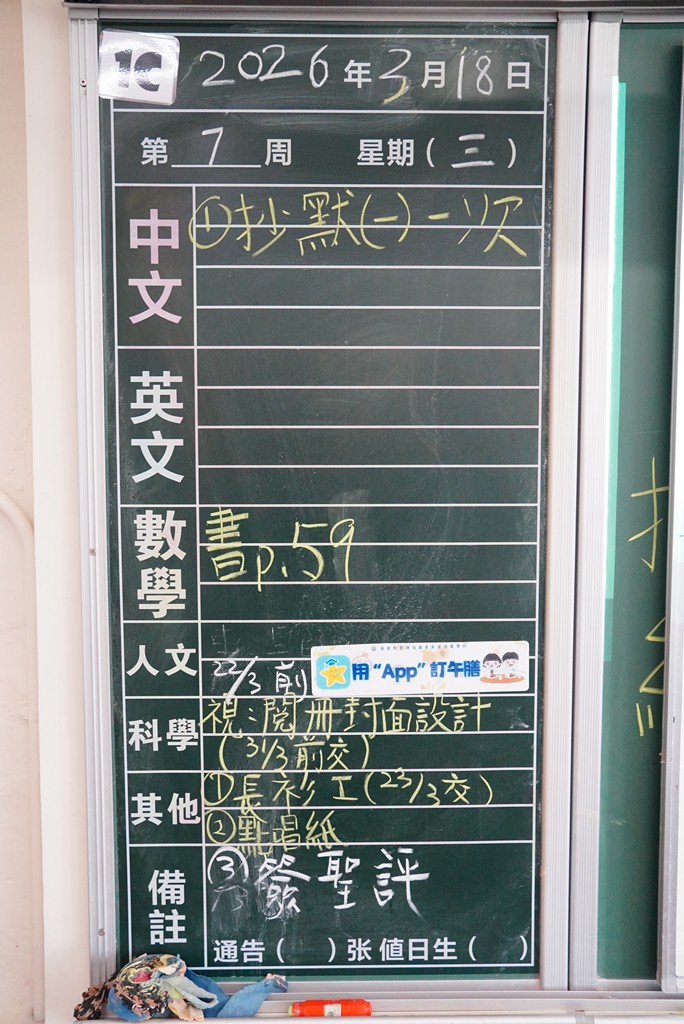 1C 2026年3月18日
第 7 周 星期(三)
中文 ①抄默(一)一次
英文
數學 書p.59
人文 22/3前 用“App”訂午膳
科學 視:閱冊封面設計
(31/3前交)
其他 ①長衫工(23/3交)
②點唱紙
備註 ③發聖評
通告( )张 值日生( )